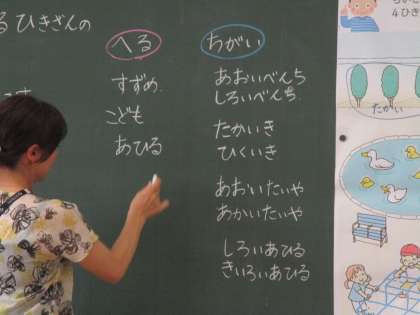 ひきざんの
へる
すずめ.
こども
あひる
ちがい
あおいべんち
しろいべんち.
たかいき
ひくいき
あおいたいや
あかいたいや
しろいあひる
きいろいあひる
4ひき
たかい